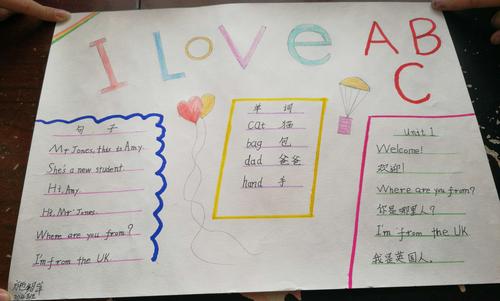 I LOVe ABC
句子
Mr Jones, this is Amy.
She's a new student.
Hi, Amy.
Hi, Mr Jones.
Where are you from?
I'm from the UK.
单词
cat 猫
bag 包
dad 爸爸
hand 手
Unit 1
Welcome!
欢迎!
Where are you from?
你是哪里人?
I'm from the UK
我是英国人.